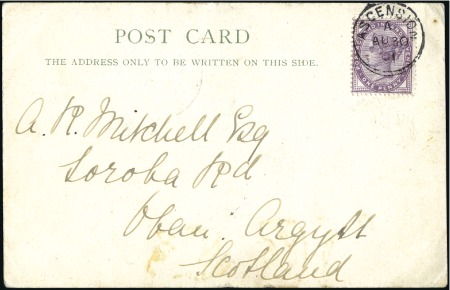 POST CARD
THE ADDRESS ONLY TO BE WRITTEN ON THIS SIDE.
ASCENSION
A
AU 30
01
ONE PENNY
A. R. Mitchell Esq
Soroba Rd
Oban. Argyll
Scotland